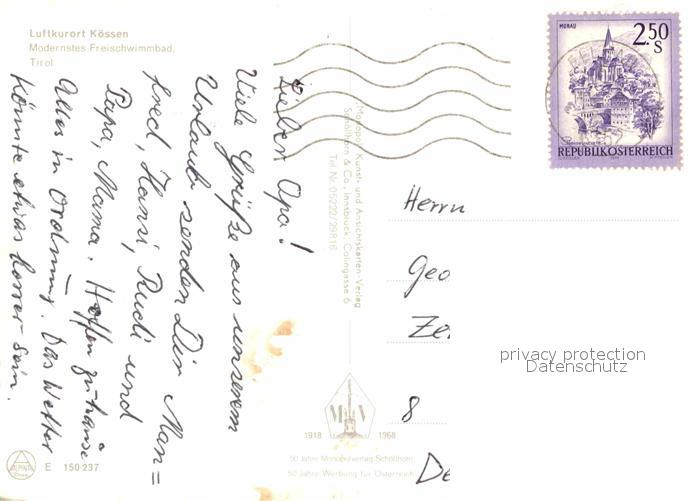 Luftkurort Kössen
Modernstes Freischwimmbad,
Tirol
Lieber Opa!
Viele Grüße aus unserem
Urlaub senden Dir Man=
fred, Hansi, Rudi und
Papa, Mama. Hoffen zuhause
Alles in Ordnung. Das Wetter
könnte etwas besser sein.
"Monopol" Kunst- und Ansichtskarten-Verlag
Schöllhorn & Co., Innsbruck, Colingasse 6
Tel. Nr. 05222/29816
MURAU
2.50
S
REPUBLIK ÖSTERREICH
Herrn
Geo
Ze
8
De
privacy protection
Datenschutz
M V
1918 1968
50 Jahre Monopolverlag Schöllhorn
50 Jahre Werbung für Österreich
E 150 237